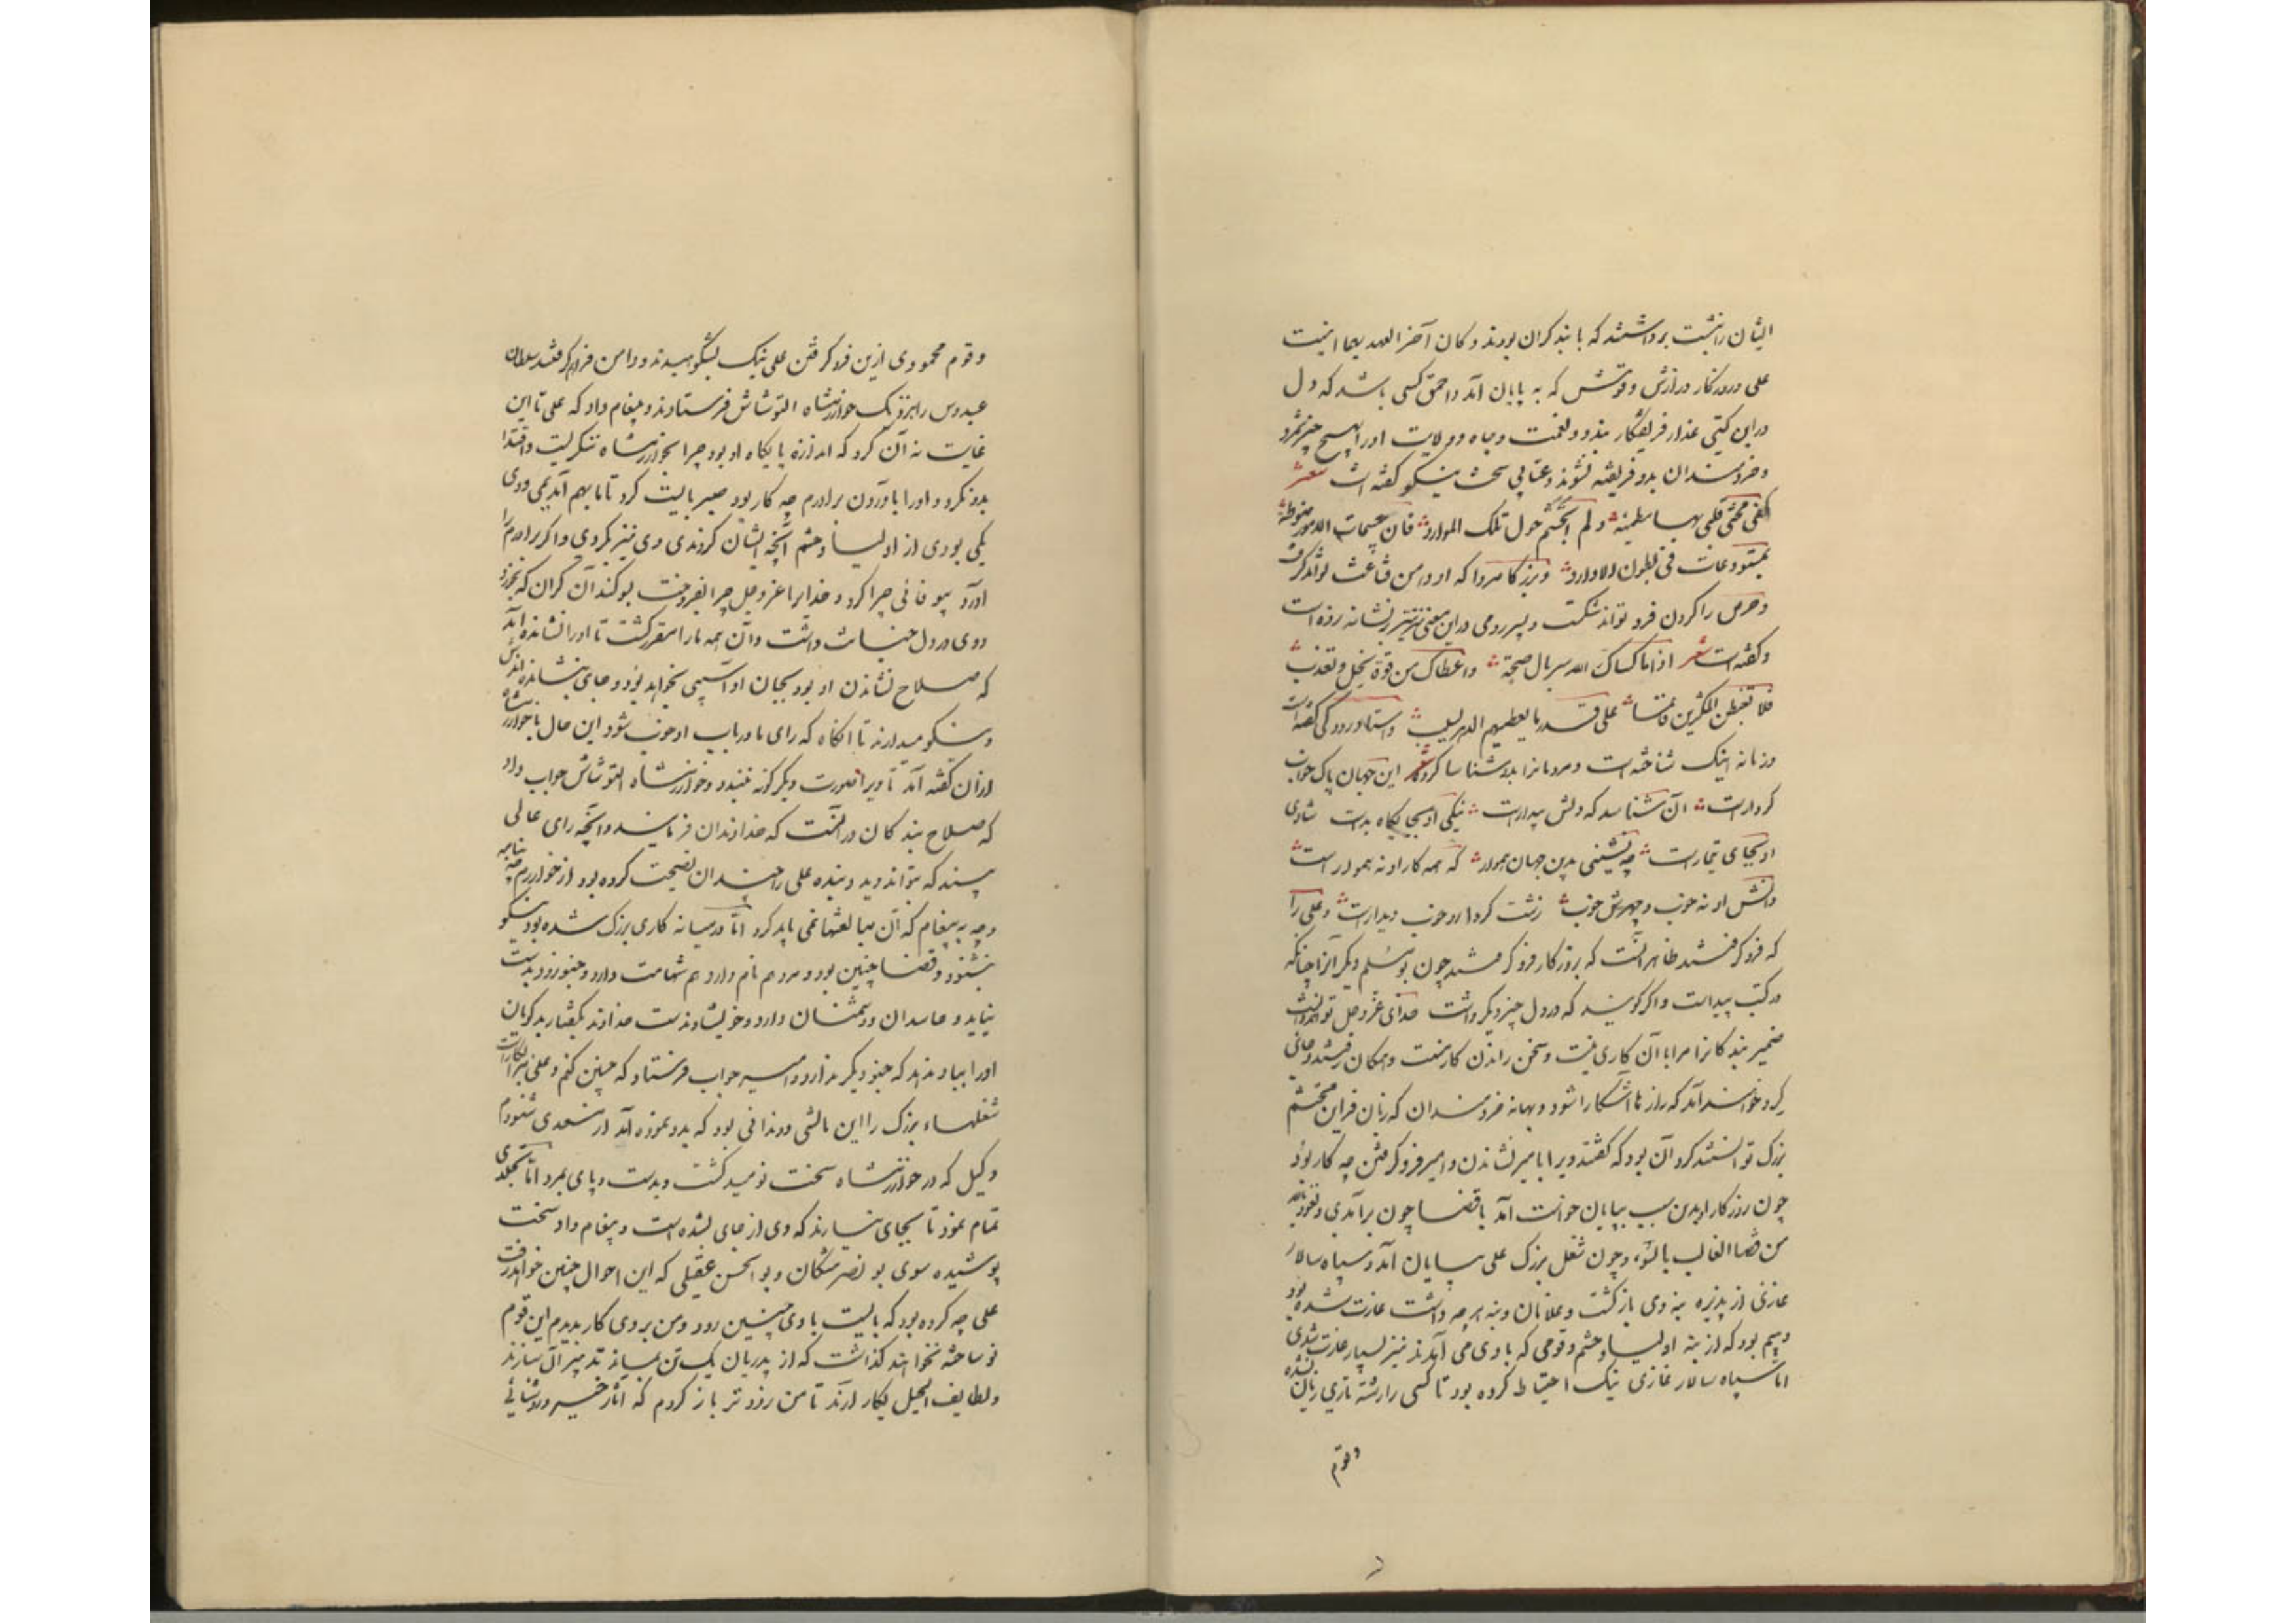 ایشان را نشست برداشتند که با بند گران بودند و کان آخر العهد بهما اینست
علی و روزگار درازش و قومش که به پایان آمد و احمق کسی باشد که دل
در این گیتی غدار فریفتگار بندد و نعمت و جاه و ولایت او را بهیچ چیز شمرد
و خردمندان بدو فریفته نشوند و عتابی سخت نیکو گفته است شعر
کفی محنتی قلبی بها مطمئنه ولم اتجشم حول تلک الموارد فان جسیمات الامور منوطة
بمستودعات فی بطون الاوارد و بزرگا مردا که او دامن قناعت تواند گرفت
و حرص را گردن فرو تواند شکست و پسر رومی در این معنی نیز تیر بر نشانه زده است
و گفته است شعر اذا ما کساک الله سربال صحة و اعطاک من قوة یحل و تعذب
فلا تغبطن المکثرین فانما علی قدر ما یعطیهم الدهر یسلب و استاد رودکی گفته است
و زمانه را نیک شناخته است و مردمانرا بدو شناسا کرده شعر این جهان پاک خواب
کردار است آن شناسد که دلش بیدار است نیکی او بجایگاه بد است شادی
او بجای تیمار است چه نشینی بدین جهان هموار که همه کار او نه هموار است
دانش او نه خوب و چهرش خوب زشت کردار و خوب دیدار است و علی را
که فرو گرفتند ظاهر آنست که بروزگار فرو گرفتند چون بومسلم و دیگر آنرا چنانکه
در کتب پیداست و اگر گویند که در دل چیز دیگر داشت خدای عز و جل تواند دانست
ضمیر بندگانرا مرا با آن کاری نیست و سخن راندن کار منست و همگان رفتند و جائی
گرد خواهند آمد که رازها آشکارا شود و بهانه خردمندان که زبان فرا این محتشم
بزرگ توانستند کرد آن بود که گفتند ویرا با میر نشاندن و امیر فرو گرفتن چه کار بود
چون روزگار او بدین سبب بپایان خواست آمد با قضا چون برآمدی و نعوذ بالله
من قضا الغالب بالسوء و چون شغل بزرگ علی بپایان آمد و سپاه سالار
غازی از پذیره بنه وی بازگشت و غلامان و بنه هر چه داشت غارت شده بود
و بیم بود که از بنه اولیا و حشم و قومی که با وی می آمدند نیز بسیار غارت شدی
اما سپاه سالار غازی نیک احتیاط کرده بود تا کسی را رشته تاری زیان نشده
و قوم
و قوم محمودی ازین فرو گرفتن علی نیک بشکوهیدند و دامن فراهم گرفتند سلطان
عبدوس را بنزدیک خوارزمشاه التونتاش فرستاد و پیغام داد که علی تا این
غایت نه آن کرد که اندازه پایگاه او بود چرا بخوارزمشاه ننگریست و اقتدا
بدو نکرد و او را باوردن برادرم چه کار بود صبر بایست کرد تا ما بهم آمدیمی و وی
یکی بودی از اولیا و حشم آنچه ایشان کردندی وی نیز بکردی و اگر برادرم را
آورد بیوفائی چرا کرد و خدایرا عز و جل چرا بفروخت بسوگندان گران که بخورد
و وی در دل خیانت داشت و آن همه ما را مقرر گشت تا او را نشانده آمد
که صلاح نشاندن او بود بجان او آسیبی نخواهد بود و جای بنشانده اندش
و نیکو میدارند تا آنگاه که رای ما در باب او خوب شود این حال با خوارزمشاه
از آن گفته آمد تا ویرا صورت دیگر گونه نبندد و خوارزمشاه التونتاش جواب داد
که صلاح بندگان در آنست که خداوندان فرمایند و آنچه رای عالی
بیند که بتواند دید و بنده علی را چندان نصیحت کرده بود از خوارزم چه بنامه
و چه به پیغام که آن مبالغتها نمی باید کرد اما در میانه کاری بزرگ شده بود نیکو
بشنود و قضا چنین بود و مرد هم نام دارد و هم شهامت دارد و چنو زود بدست
نیاید و حاسدان و دشمنان دارد و خویشاوندست خداوند بگفتار بدگویان
او را بباد ندهد که چنو دیگر ندارد و امیر جواب فرستاد که چنین کنم و علی مرا بکار است
شغلهاء بزرگ را این مالشی و دندانی بود که بدو نموده آمد از مسعدی شنودم
وکیل که در خوارزمشاه سخت نومید گشت و بدست و پای بمرد اما تجلدی
تمام نمود تا بجای نیارند که وی از جای بشده است و پیغام داد سخت
پوشیده سوی بو نصر مشکان و بو الحسن عقیلی که این احوال چنین خواهد رفت
علی چه کرده بود که بایست با وی چنین رود و من بروی کار بدیدم این قوم
نوساخته نخواهند گذاشت که از پدریان یک تن بماند تدبیر آن سازند
و لطایف الحیل بکار آرند تا من زودتر باز گردم که آثار خیر و روشنائی